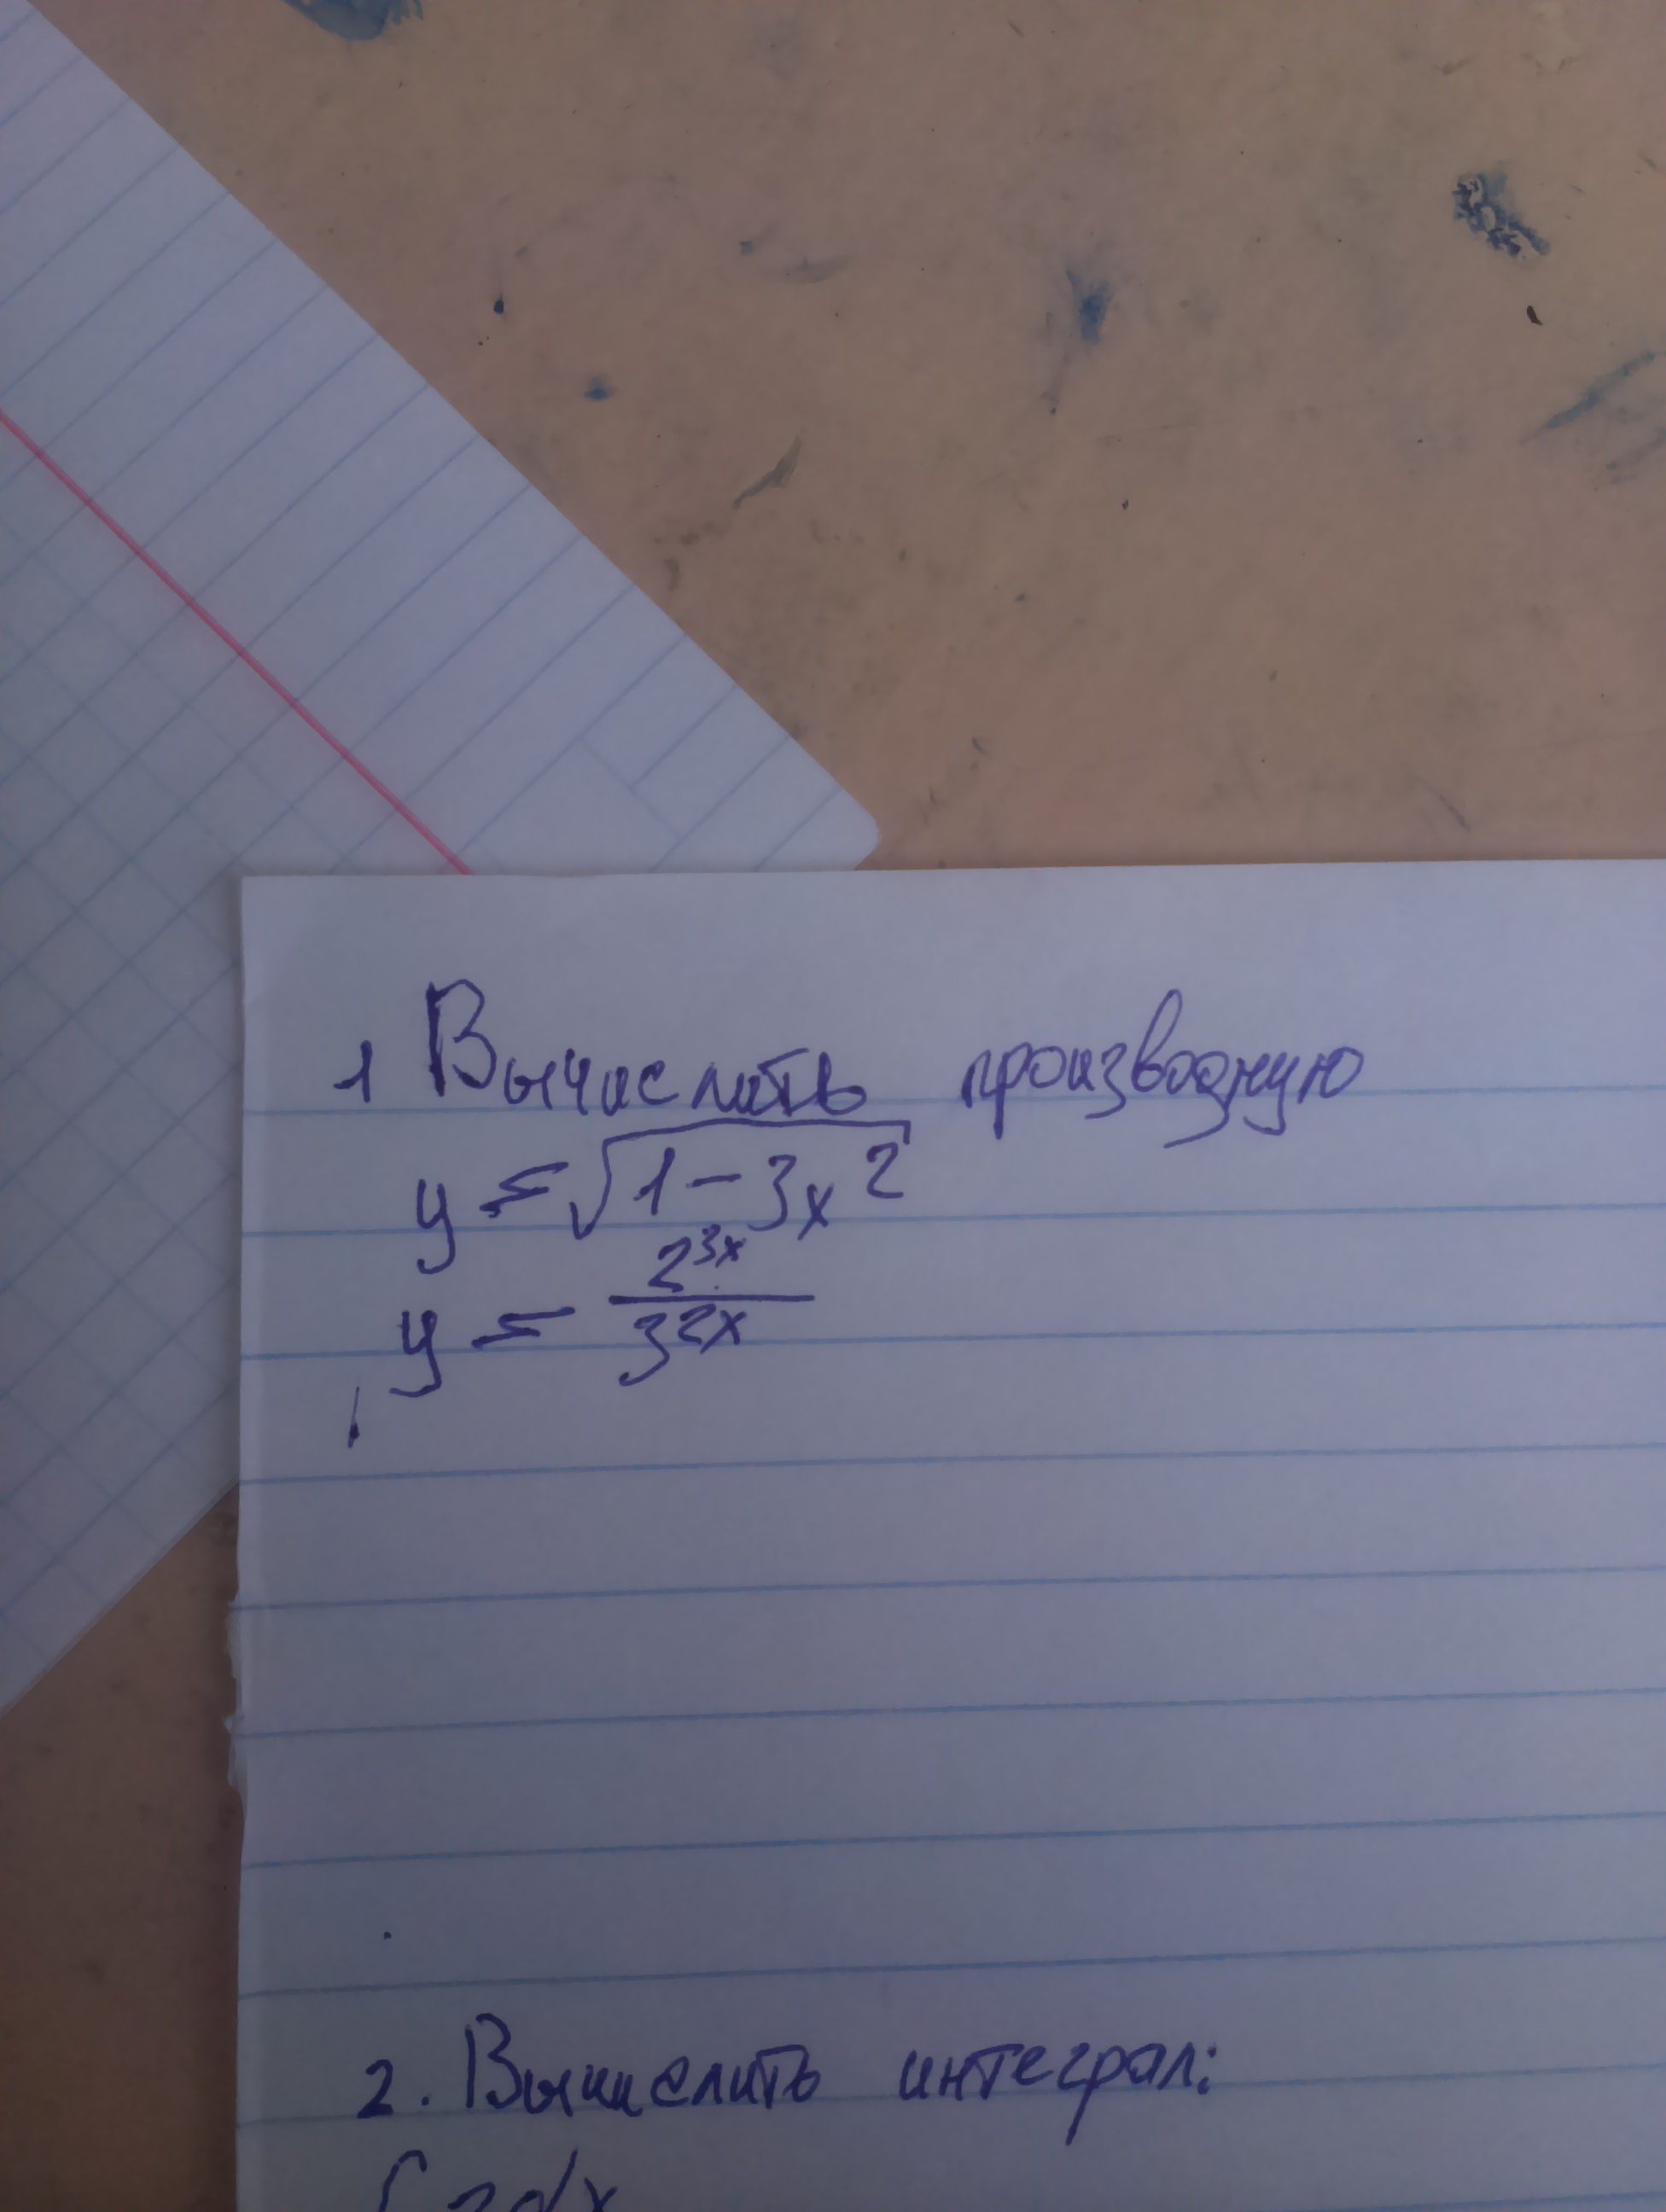 1 Вычислить производную
y = √1 - 3x²
y = 2^3x / 3^2x
2. Вычислить интеграл: